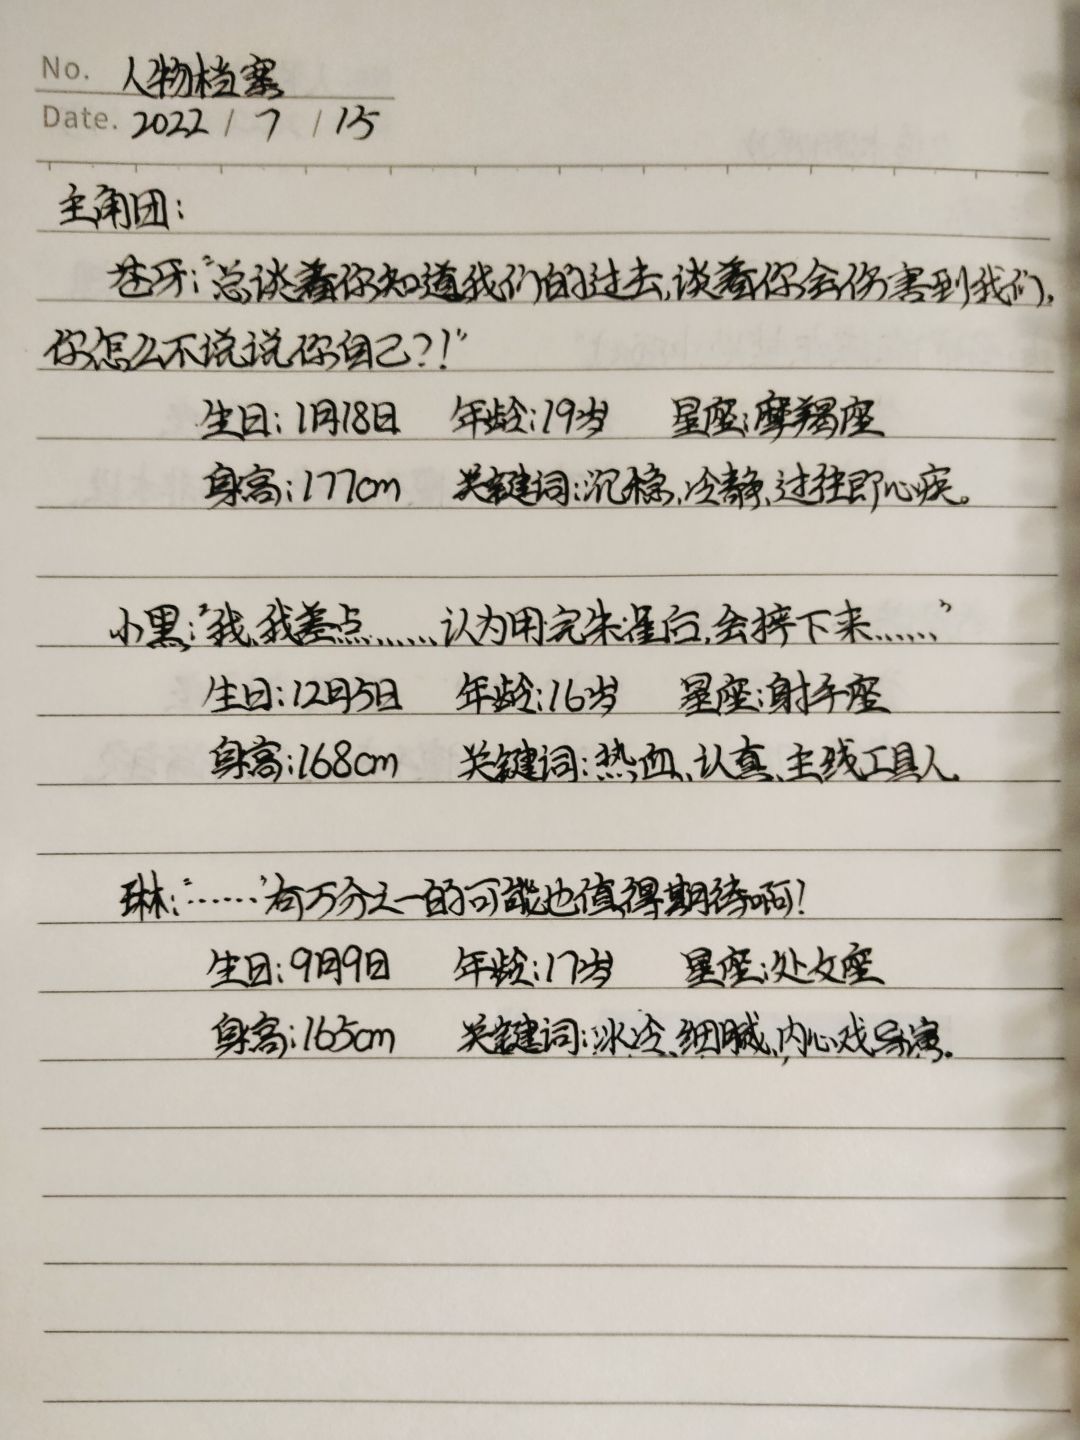 No. 人物档案
Date. 2022 / 7 / 15
主角团:
苍牙:"总谈着你知道我们的过去,谈着你会伤害到我们,
你怎么不说说你自己?!"
生日:1月18日 年龄:19岁 星座:摩羯座
身高:177cm 关键词:沉稳、冷静、过往即心疾。
小黑:"我、我差点……认为用完朱雀后,会摔下来……"
生日:12月5日 年龄:16岁 星座:射手座
身高:168cm 关键词:热血、认真、主线工具人
琳:"……"有万分之一的可能也值得期待啊!
生日:9月9日 年龄:17岁 星座:处女座
身高:165cm 关键词:冰冷、细腻、内心戏导演.